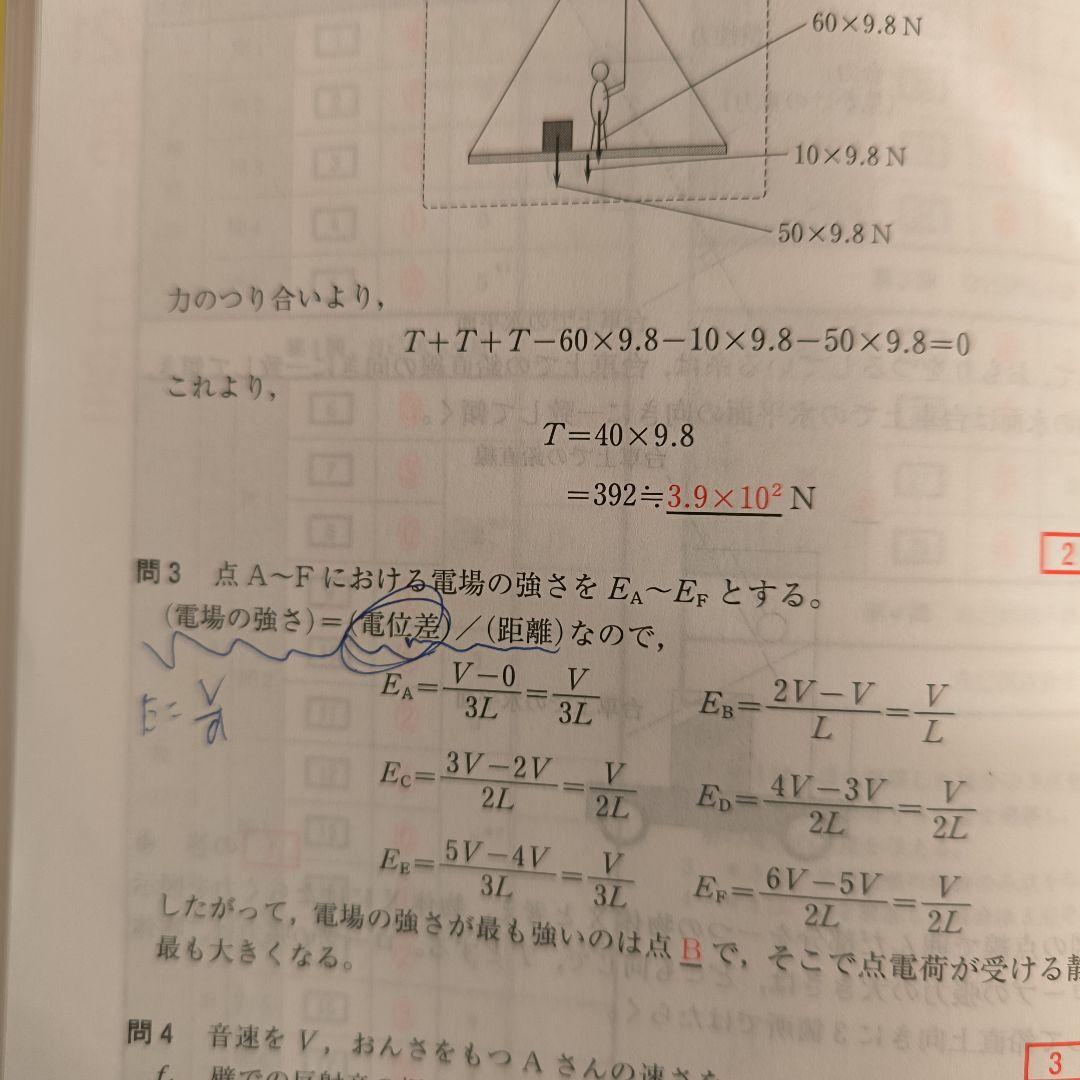 60×9.8 N
10×9.8 N
50×9.8 N
力のつり合いより，
T+T+T−60×9.8−10×9.8−50×9.8=0
これより，
T=40×9.8
=392≒3.9×10² N
2
問3 点A〜Fにおける電場の強さを E_A〜E_F とする。
(電場の強さ)＝(電位差)／(距離)なので，
E_A=(V−0)/3L=V/3L E_B=(2V−V)/L=V/L
E=V/d
E_C=(3V−2V)/2L=V/2L E_D=(4V−3V)/2L=V/2L
E_E=(5V−4V)/3L=V/3L E_F=(6V−5V)/2L=V/2L
したがって，電場の強さが最も強いのは点 B で，そこで点電荷が受ける
最も大きくなる。
問4 音速を V，おんさをもつ A さんの速さを
3